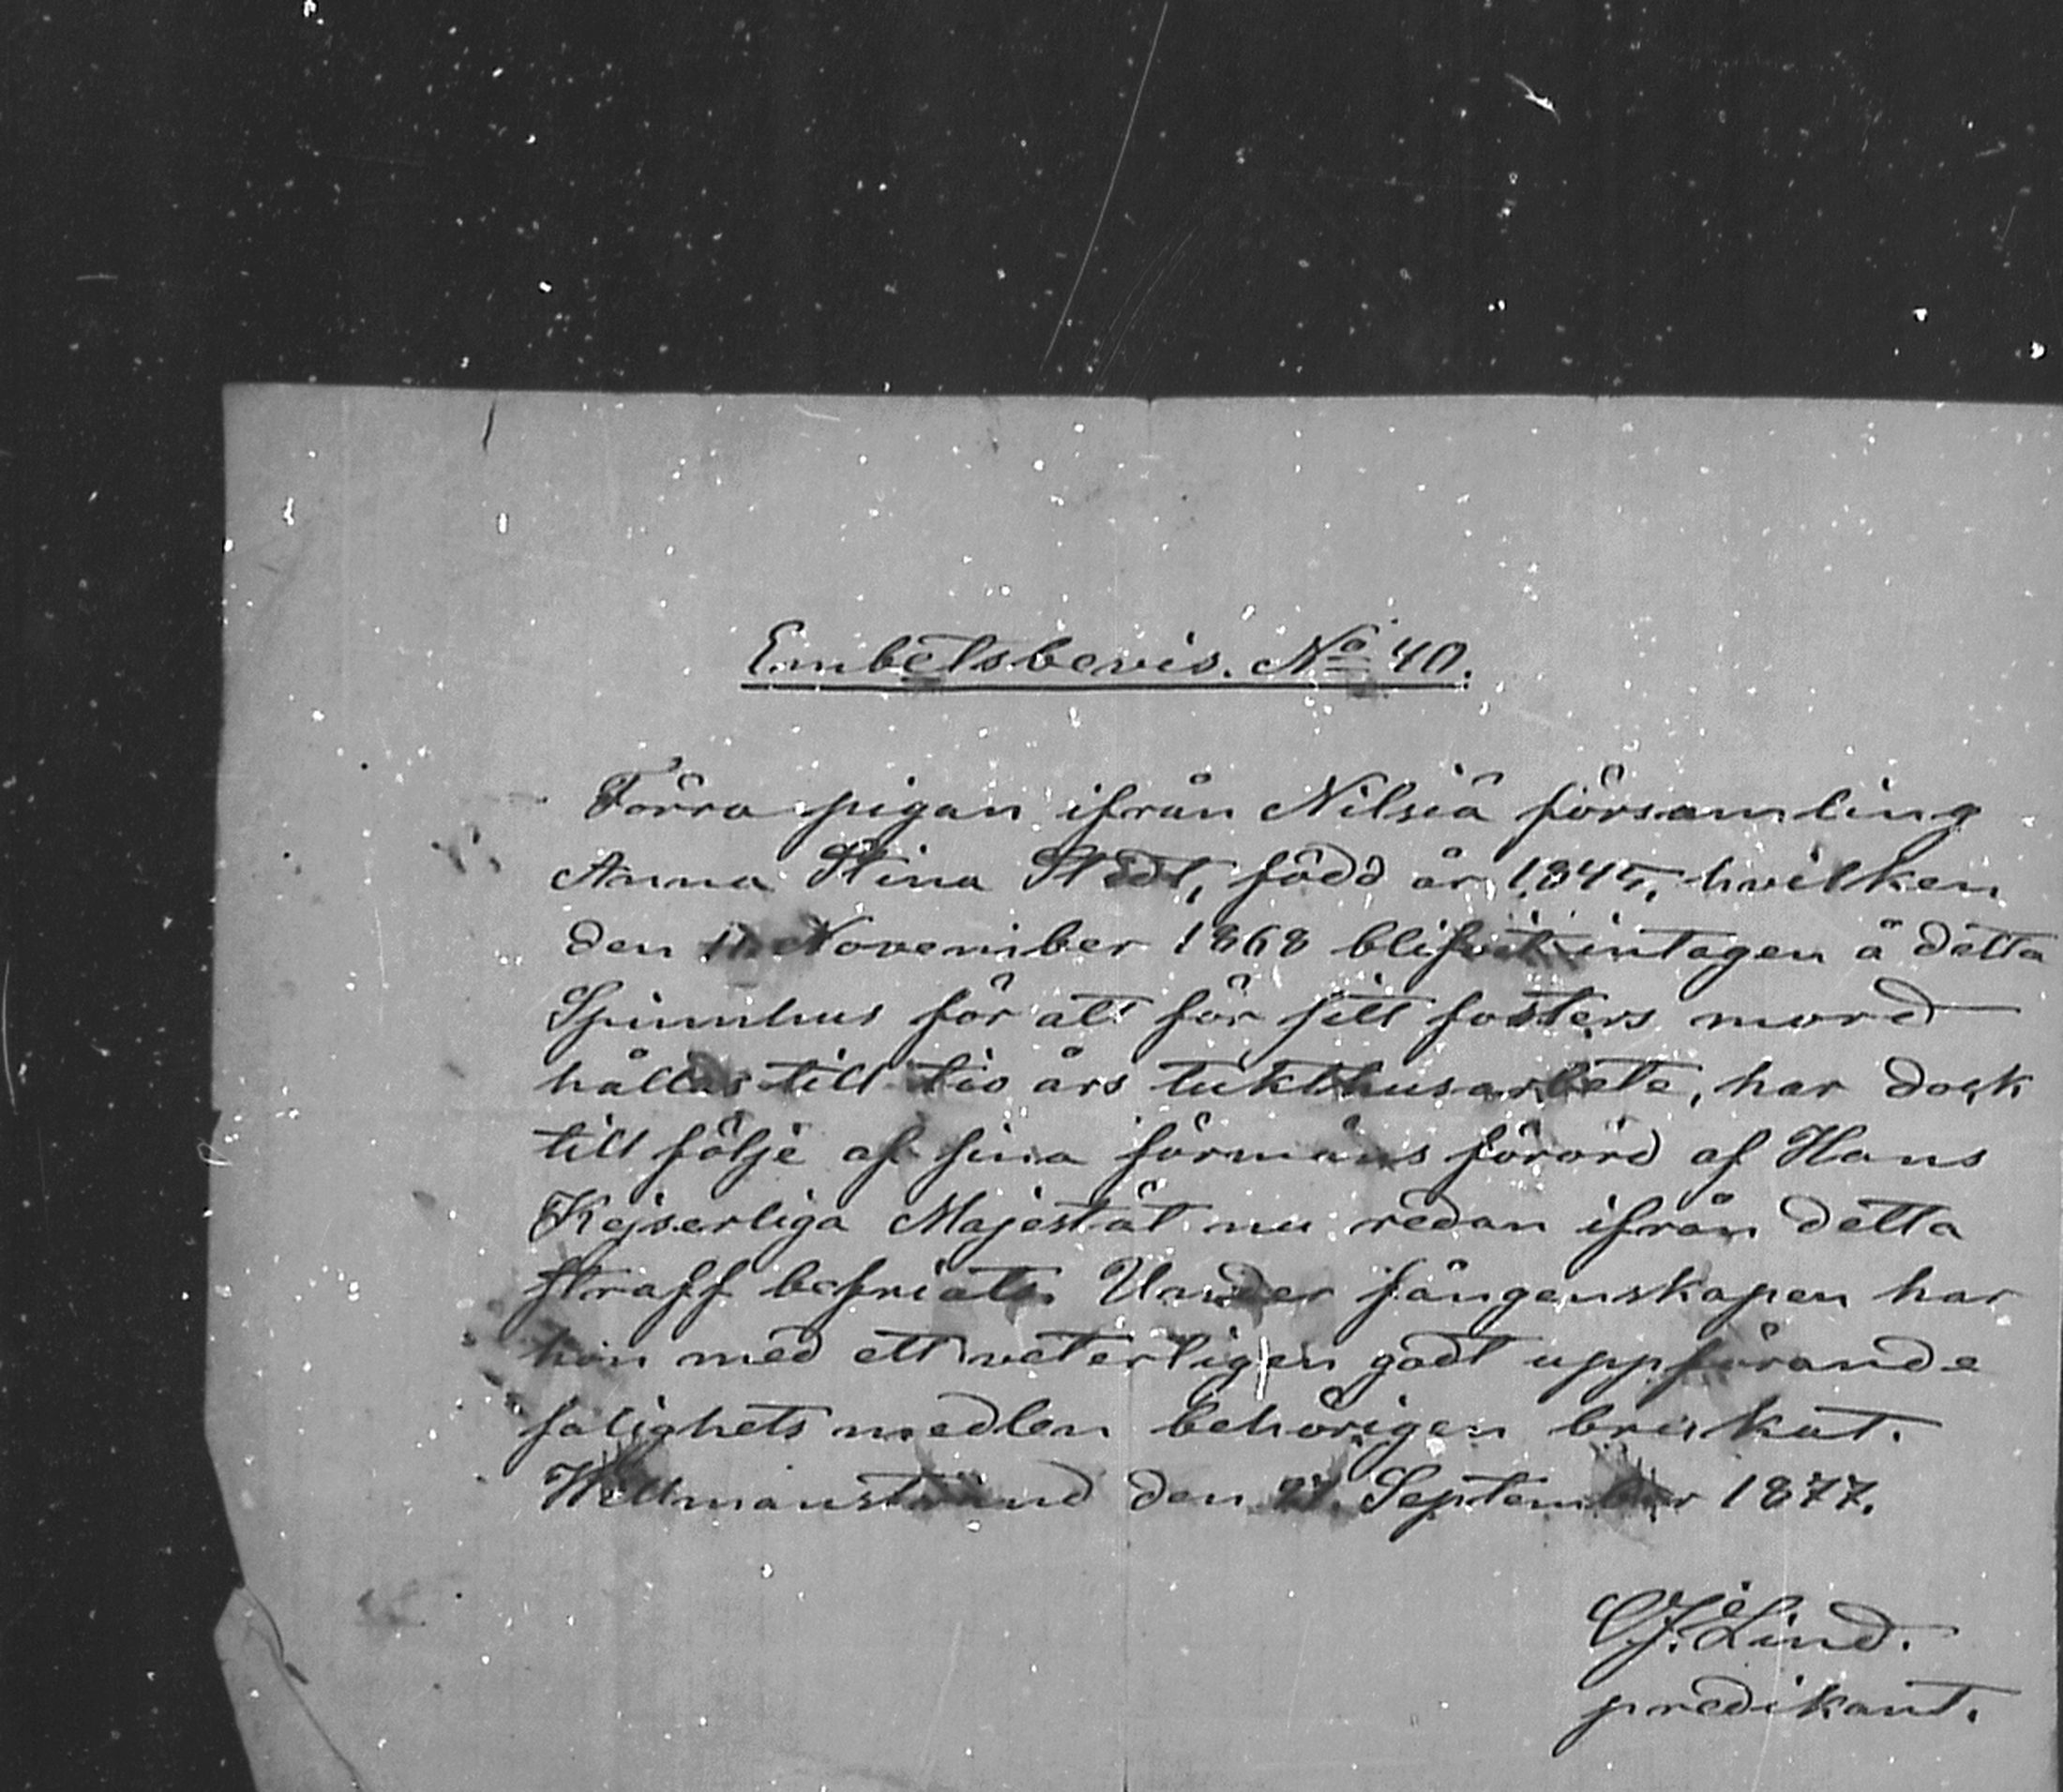 Embetsbevis. No 40.
Förra pigan ifrån Nilsiä församling
Anna Stina född år 1845, hvilken
den 11 November 1868 blifvit intagen å detta
Spinnhus för att för sitt fosters mord
hållas till tio års tukthusarbete, har dock
till följe af sina förmäns förord af Hans
Kejserliga Majestät nu redan ifrån detta
straff befriats. Under fångenskapen har
hon med ett veterligen godt uppförande
salighetsmedlen behörigen brukat.
Willmanstrand den 27. September 1877.
C.J. Lind.
predikant.